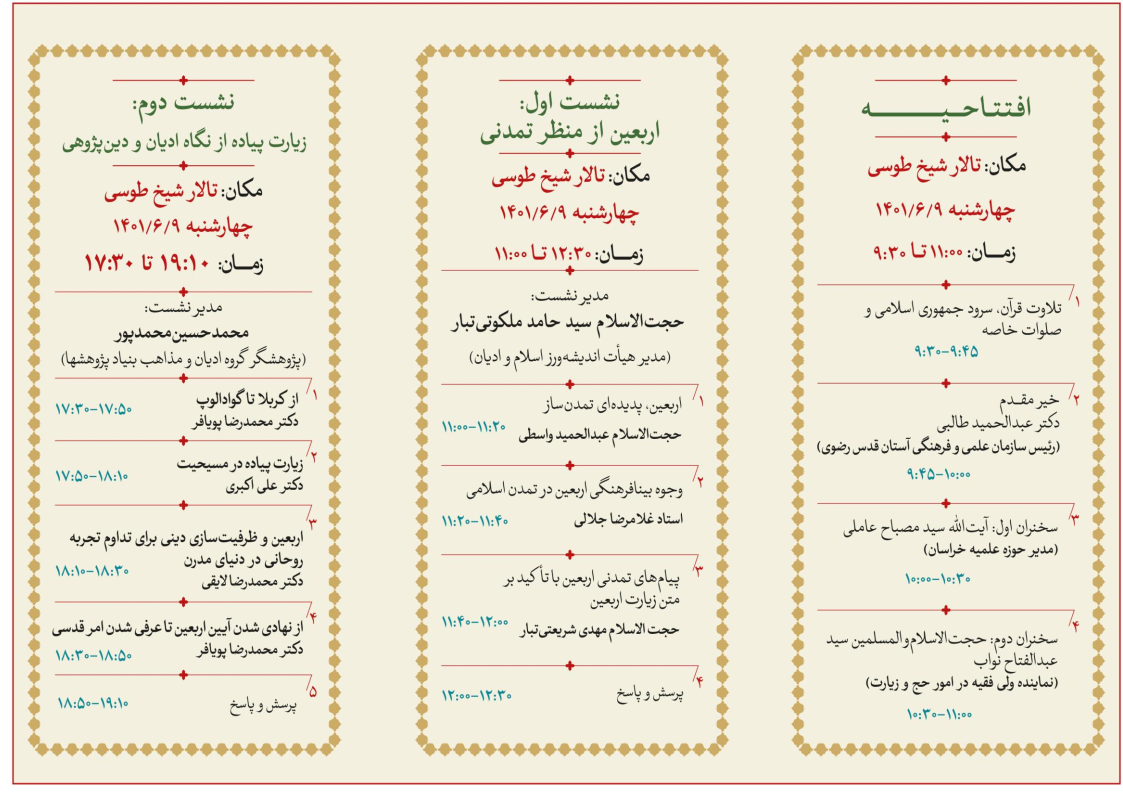 افتتاحـیـــــــــه
مکان: تالار شیخ طوسی
چهارشنبه ۱۴۰۱/۶/۹
زمــان: ۱۱:۰۰ تــا ۹:۳۰
۱
تلاوت قرآن، سرود جمهوری اسلامی و
صلوات خاصه
۹:۳۰-۹:۴۵
۲
خیر مقـدم
دکتر عبدالحمید طالبی
(رئیس سازمان علمی و فرهنگی آستان قدس رضوی)
۹:۴۵-۱۰:۰۰
۳
سخنران اول: آیت‌الله سید مصباح عاملی
(مدیر حوزه علمیه خراسان)
۱۰:۰۰-۱۰:۳۰
۴
سخنران دوم: حجت‌الاسلام‌والمسلمین سید
عبدالفتاح نواب
(نماینده ولی فقیه در امور حج و زیارت)
۱۰:۳۰-۱۱:۰۰
نشست اول:
اربعین از منظر تمدنی
مکان: تالار شیخ طوسی
چهارشنبه ۱۴۰۱/۶/۹
زمــان: ۱۲:۳۰ تــا ۱۱:۰۰
مدیر نشست:
حجت‌الاسلام سید حامد ملکوتی‌تبار
(مدیر هیأت اندیشه‌ورز اسلام و ادیان)
۱
اربعین، پدیده‌ای تمدن‌ساز
حجت‌الاسلام عبدالحمید واسطی
۱۱:۰۰-۱۱:۲۰
۲
وجوه بینافرهنگی اربعین در تمدن اسلامی
استاد غلامرضا جلالی
۱۱:۲۰-۱۱:۴۰
۳
پیام‌های تمدنی اربعین با تأکید بر
متن زیارت اربعین
حجت الاسلام مهدی شریعتی‌تبار
۱۱:۴۰-۱۲:۰۰
۴
پرسش و پاسخ
۱۲:۰۰-۱۲:۳۰
نشست دوم:
زیارت پیاده از نگاه ادیان و دین‌پژوهی
مکان: تالار شیخ طوسی
چهارشنبه ۱۴۰۱/۶/۹
زمــان: ۱۹:۱۰ تا ۱۷:۳۰
مدیر نشست:
محمدحسین‌محمدپور
(پژوهشگر گروه ادیان و مذاهب بنیاد پژوهشها)
۱
از کربلا تا گوادالوپ
دکتر محمدرضا پویافر
۱۷:۳۰-۱۷:۵۰
۲
زیارت پیاده در مسیحیت
دکتر علی اکبری
۱۷:۵۰-۱۸:۱۰
۳
اربعین و ظرفیت‌سازی دینی برای تداوم تجربه
روحانی در دنیای مدرن
دکتر محمدرضا لایقی
۱۸:۱۰-۱۸:۳۰
۴
از نهادی شدن آیین اربعین تا عرفی شدن امر قدسی
دکتر محمدرضا پویافر
۱۸:۳۰-۱۸:۵۰
۵
پرسش و پاسخ
۱۸:۵۰-۱۹:۱۰